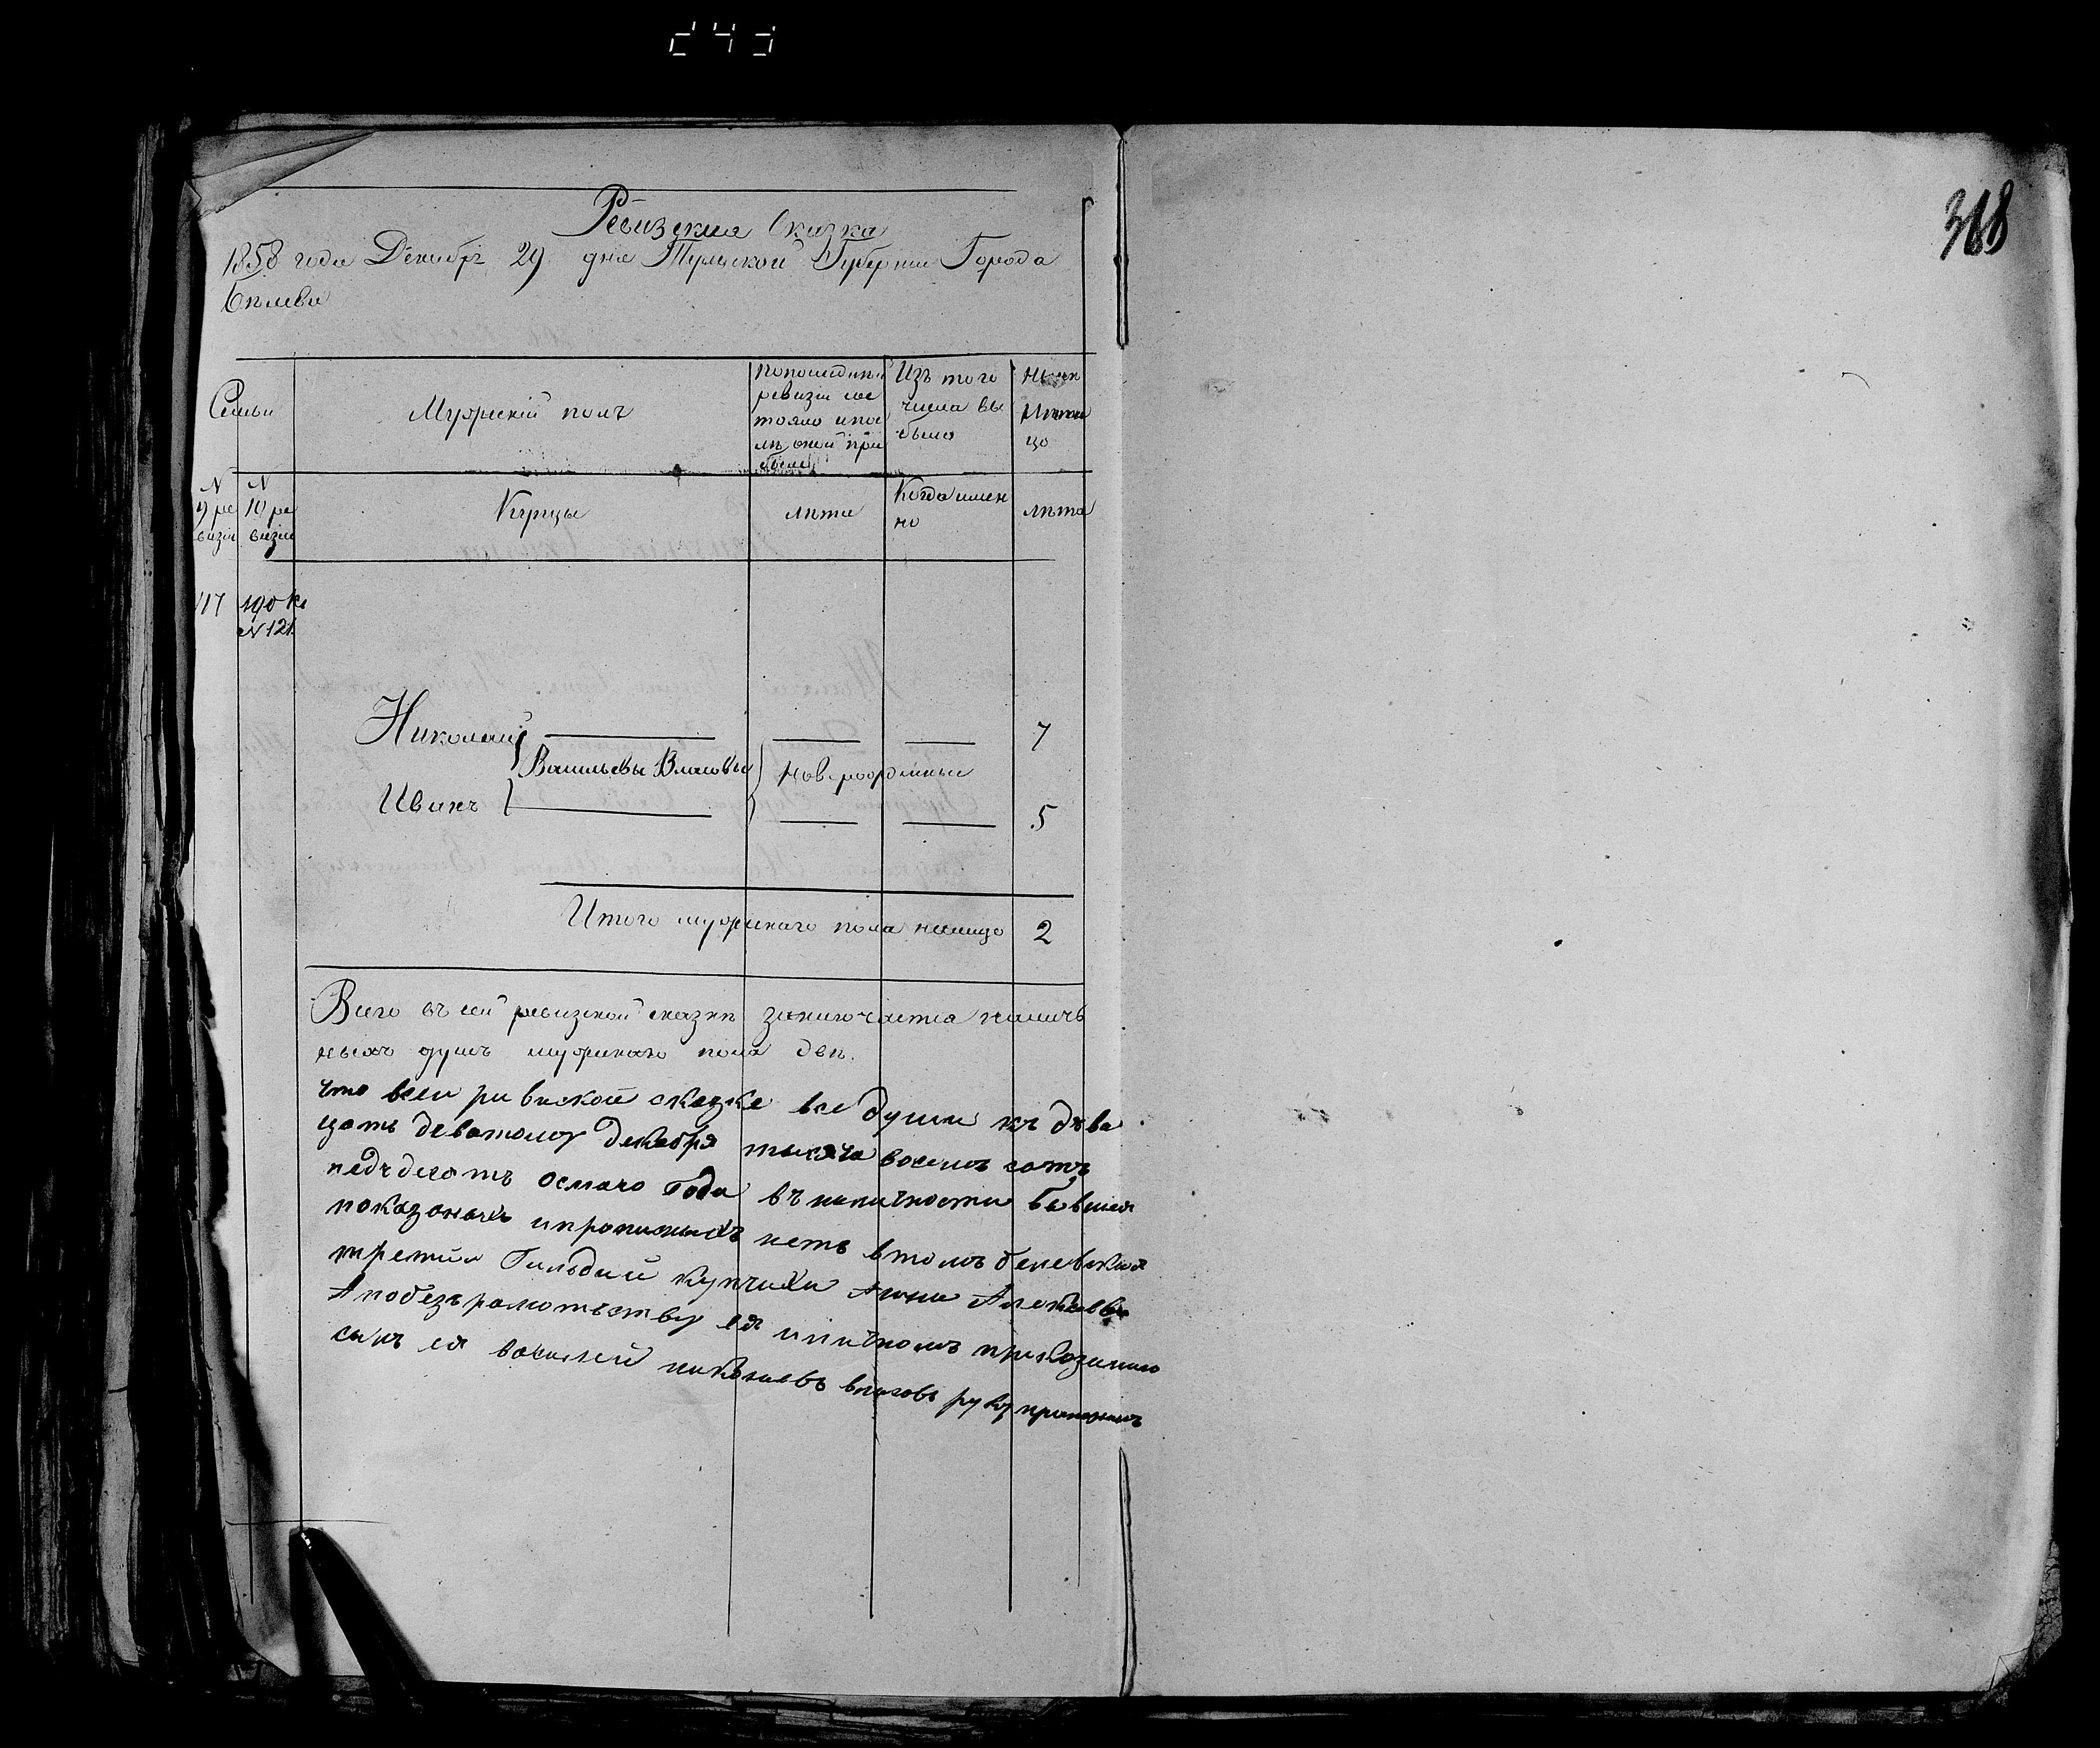 368
Ревизская Сказка
1858 года Декабря 29 дня Тульской Губернии Города
Бѣлева
Семьи
Мужескій полъ
По последней
ревизіи сос
тояло и пос
лѣ оней при
было
Изъ того
числа вы
было
Ныне
на лицо
N
9 ре
визіи
N
10 ре
визіи
Купцы
лѣта
Когда имен
но
лѣта
117
N 121
Николай 7
Васильевы Власовы новорожденные
Иванъ 5
Итого мужескаго пола налицо 2
Всего въ сей ревизской сказкѣ заключается налич
ныхъ душъ мужескаго пола двѣ.
что всеи ревиской сказке все души къ два
цать девятому декабря тысяча восемъ сотъ
педъдесятъ осмаго года въ наличности бывшея
показаныхъ ипрописныхъ нетъ втомъ белевская
третий Гильдии купчиха Анна
Апобезграмотьству ея иличномъ приказанию
сынъ ея василей власовъ руку приложилъ